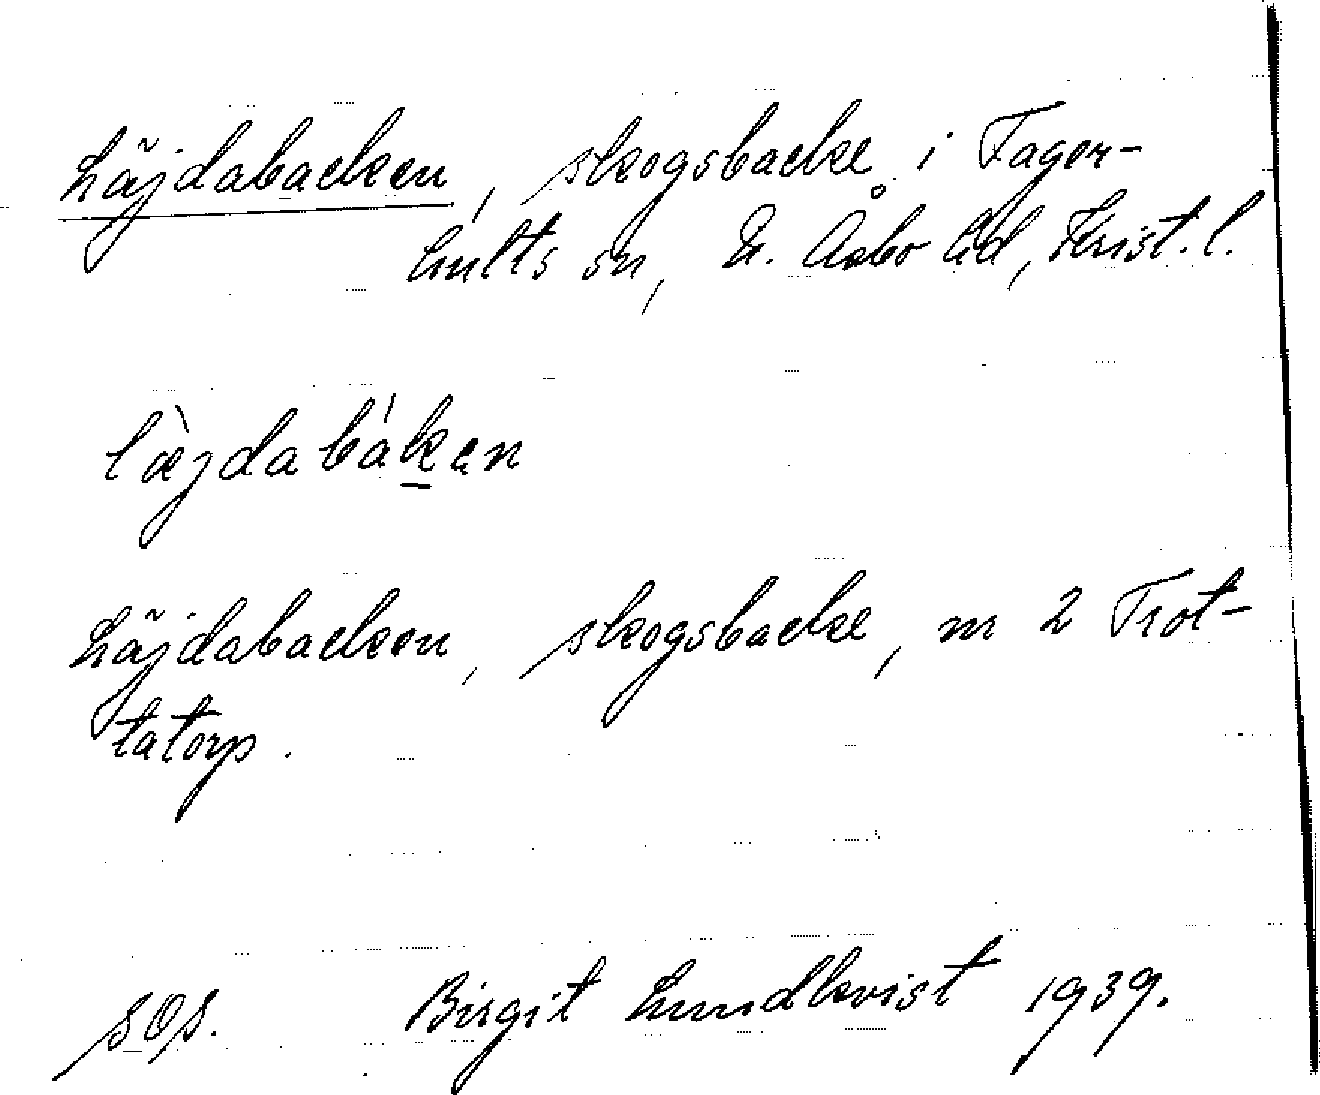 Läjdabacken, skogsbacke i Fager-
hults sn, N. Åsbo hd, Krist. l.
læ̀jdabákan
Läjdabacken, skogsbacke, m 2 Trot-
tatorp.
sOs. Birgit Lundkvist 1939.